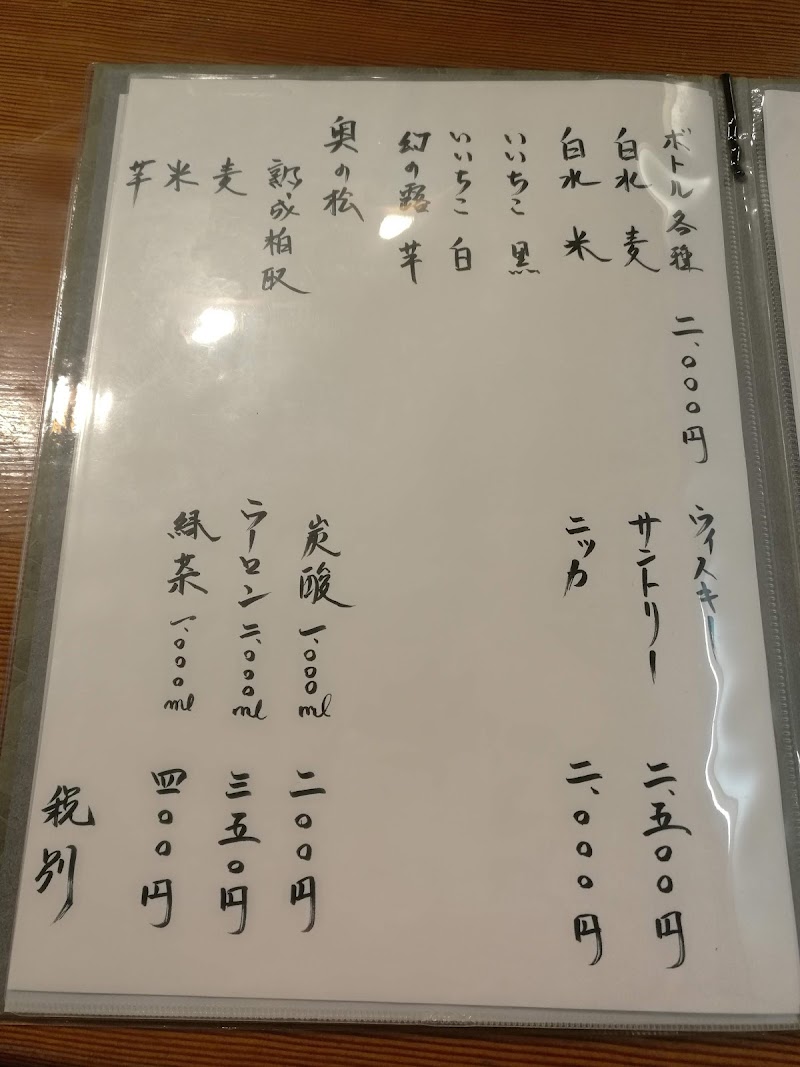 ボトル各種 二、〇〇〇円
白水 麦
白水 米
いいちこ 黒
いいちこ 白
幻の露 芋
奥の松
熟成粕取
麦
米
芋
ウィスキー
サントリー 二、五〇〇円
ニッカ 二、〇〇〇円
炭酸 一、〇〇〇ml 二〇〇円
ウーロン 二、〇〇〇ml 三五〇円
緑茶 一、〇〇〇ml 四〇〇円
税別